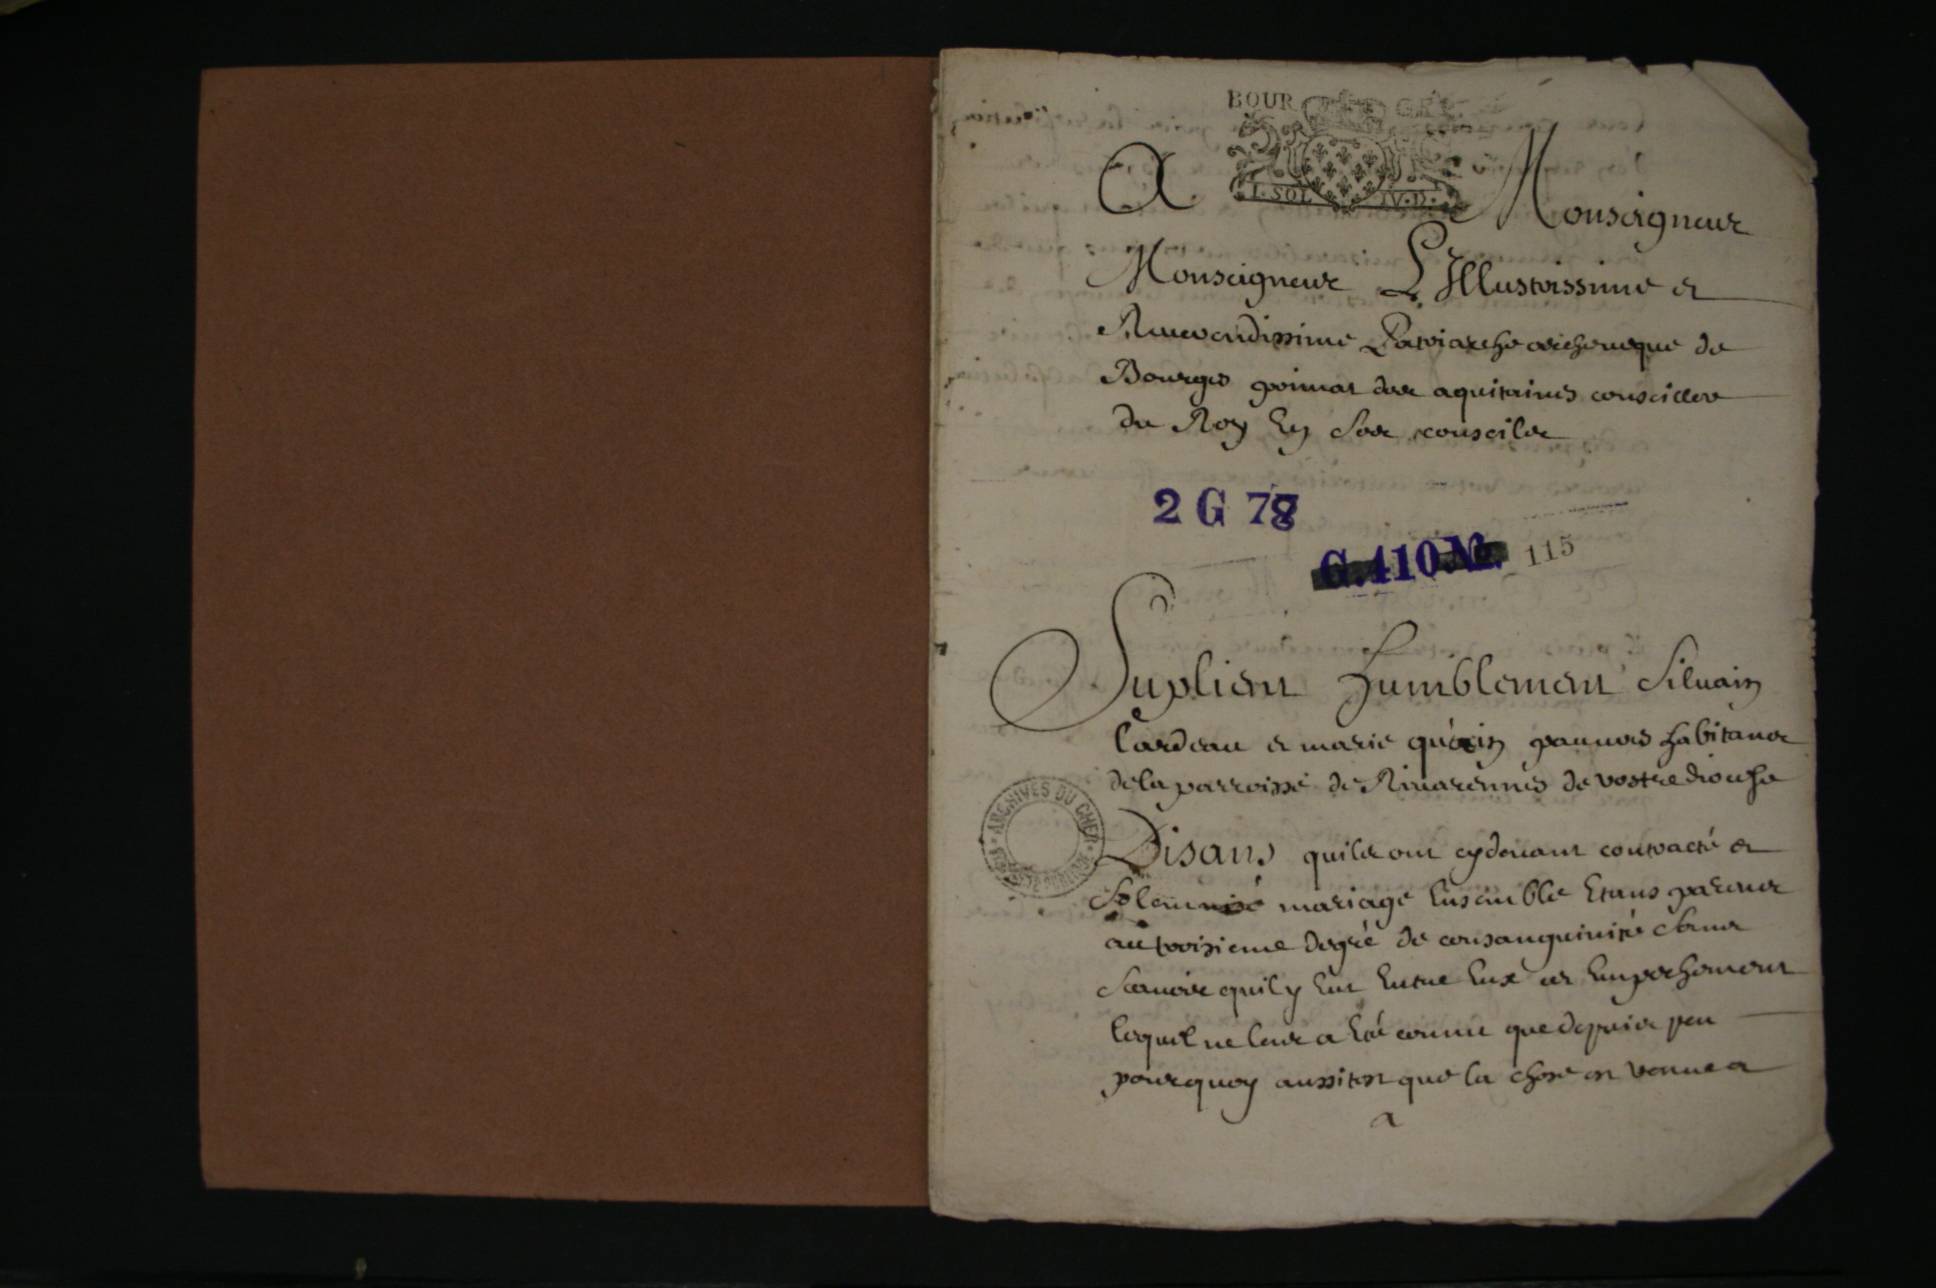 BOUR GES
I. SOL IV. D.
A Monseigneur
Monseigneur L'Illustrissime et
Reverendissime Patriarche archeuesque de
Bourges primat des aquitaines conseiller
du Roy En ses conseils
2 G 78
G. 410 No. 115
Suplient humblement Siluain
lardeau et marie quérin pauures habitans
de la parroisse de Riuarennes de vostre diocese
ARCHIVES DU CHER
Disans quils ont cydeuant contracté et
solemnisé mariage Ensemble Etans parens
au troisieme degré de consanguinité sans
scauoir quil y Eut Entre Eux cet Empeschement
lequel ne leur a Eté connu que depuis peu
pourquoy aussitost que la chose est venue a
a